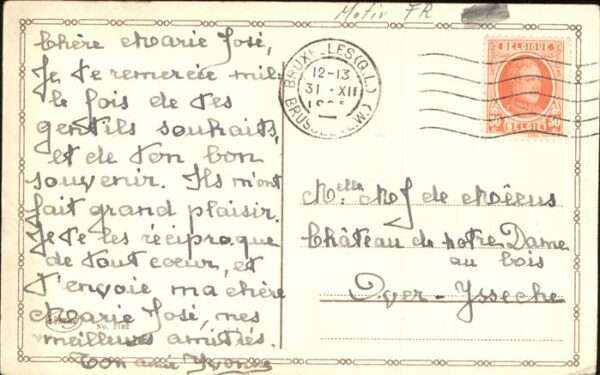 Motiv FR
Chère Marie José,
Je te remercie mil-
le fois de tes
gentils souhaits,
et de ton bon
souvenir. Ils m'ont
fait grand plaisir.
Je te les réciproque
de tout coeur, et
t'envoie ma chère
Marie José, mes
meilleurs amitiés.
Ton amie Yvonne
No.
BRUXELLES (Q.L.)
12-13
31 XII
BRUSSEL (L.W.)
BELGIQUE
50 50
BELGIË
Melle MJ de Moëeus
Château de Notre Dame
au bois
Over-Yssche